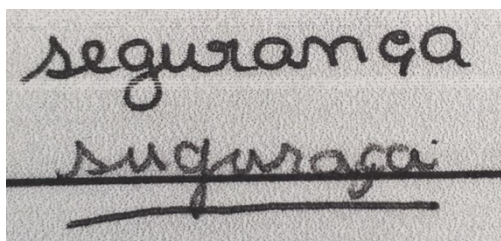 segurança
suguraça